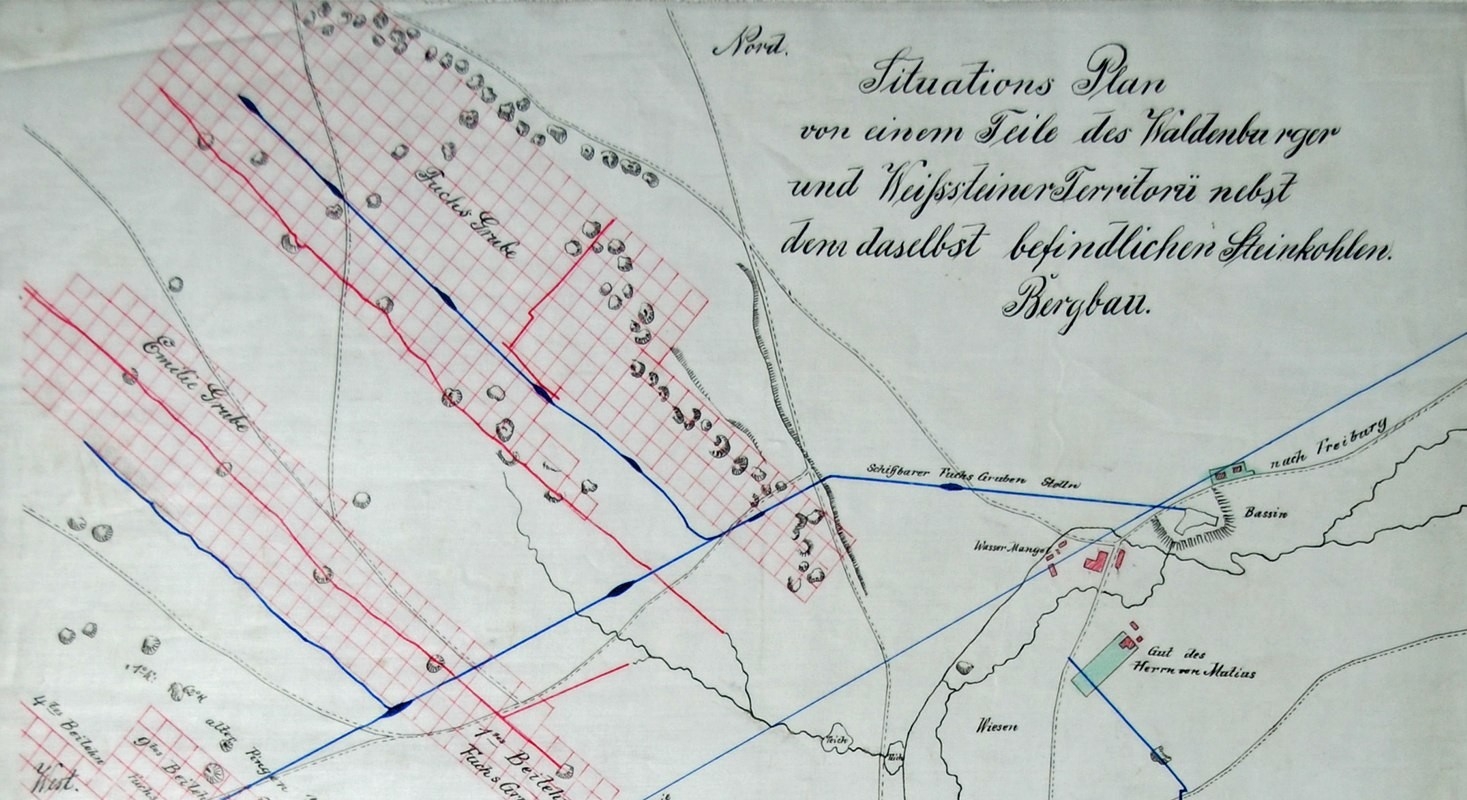 Nord.
Situations Plan
von einem Teile des Waldenburger
und Weißsteiner Territorii nebst
dem daselbst befindlichen Steinkohlen.
Bergbau.
Fuchs Grube
Emilie Grube
Schiffbarer Fuchs Gruben Stolln
nach Freiburg
Bassin
Wasser Mangel
Gut des
Herrn von Matias
Wiesen
Teich
alte Pingen
4tes Beilehn
9tes Beilehn
Fuchs
1tes Beileh
Fuchs Gru
West.